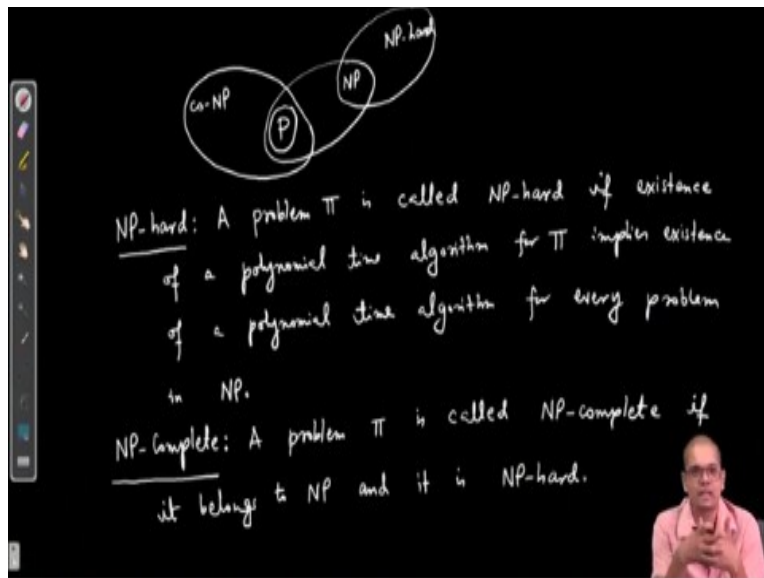 NP-hard
NP
co-NP
P
NP-hard: A problem π is called NP-hard if existence
of a polynomial time algorithm for π implies existence
of a polynomial time algorithm for every problem
in NP.
NP-Complete: A problem π is called NP-complete if
it belongs to NP and it is NP-hard.